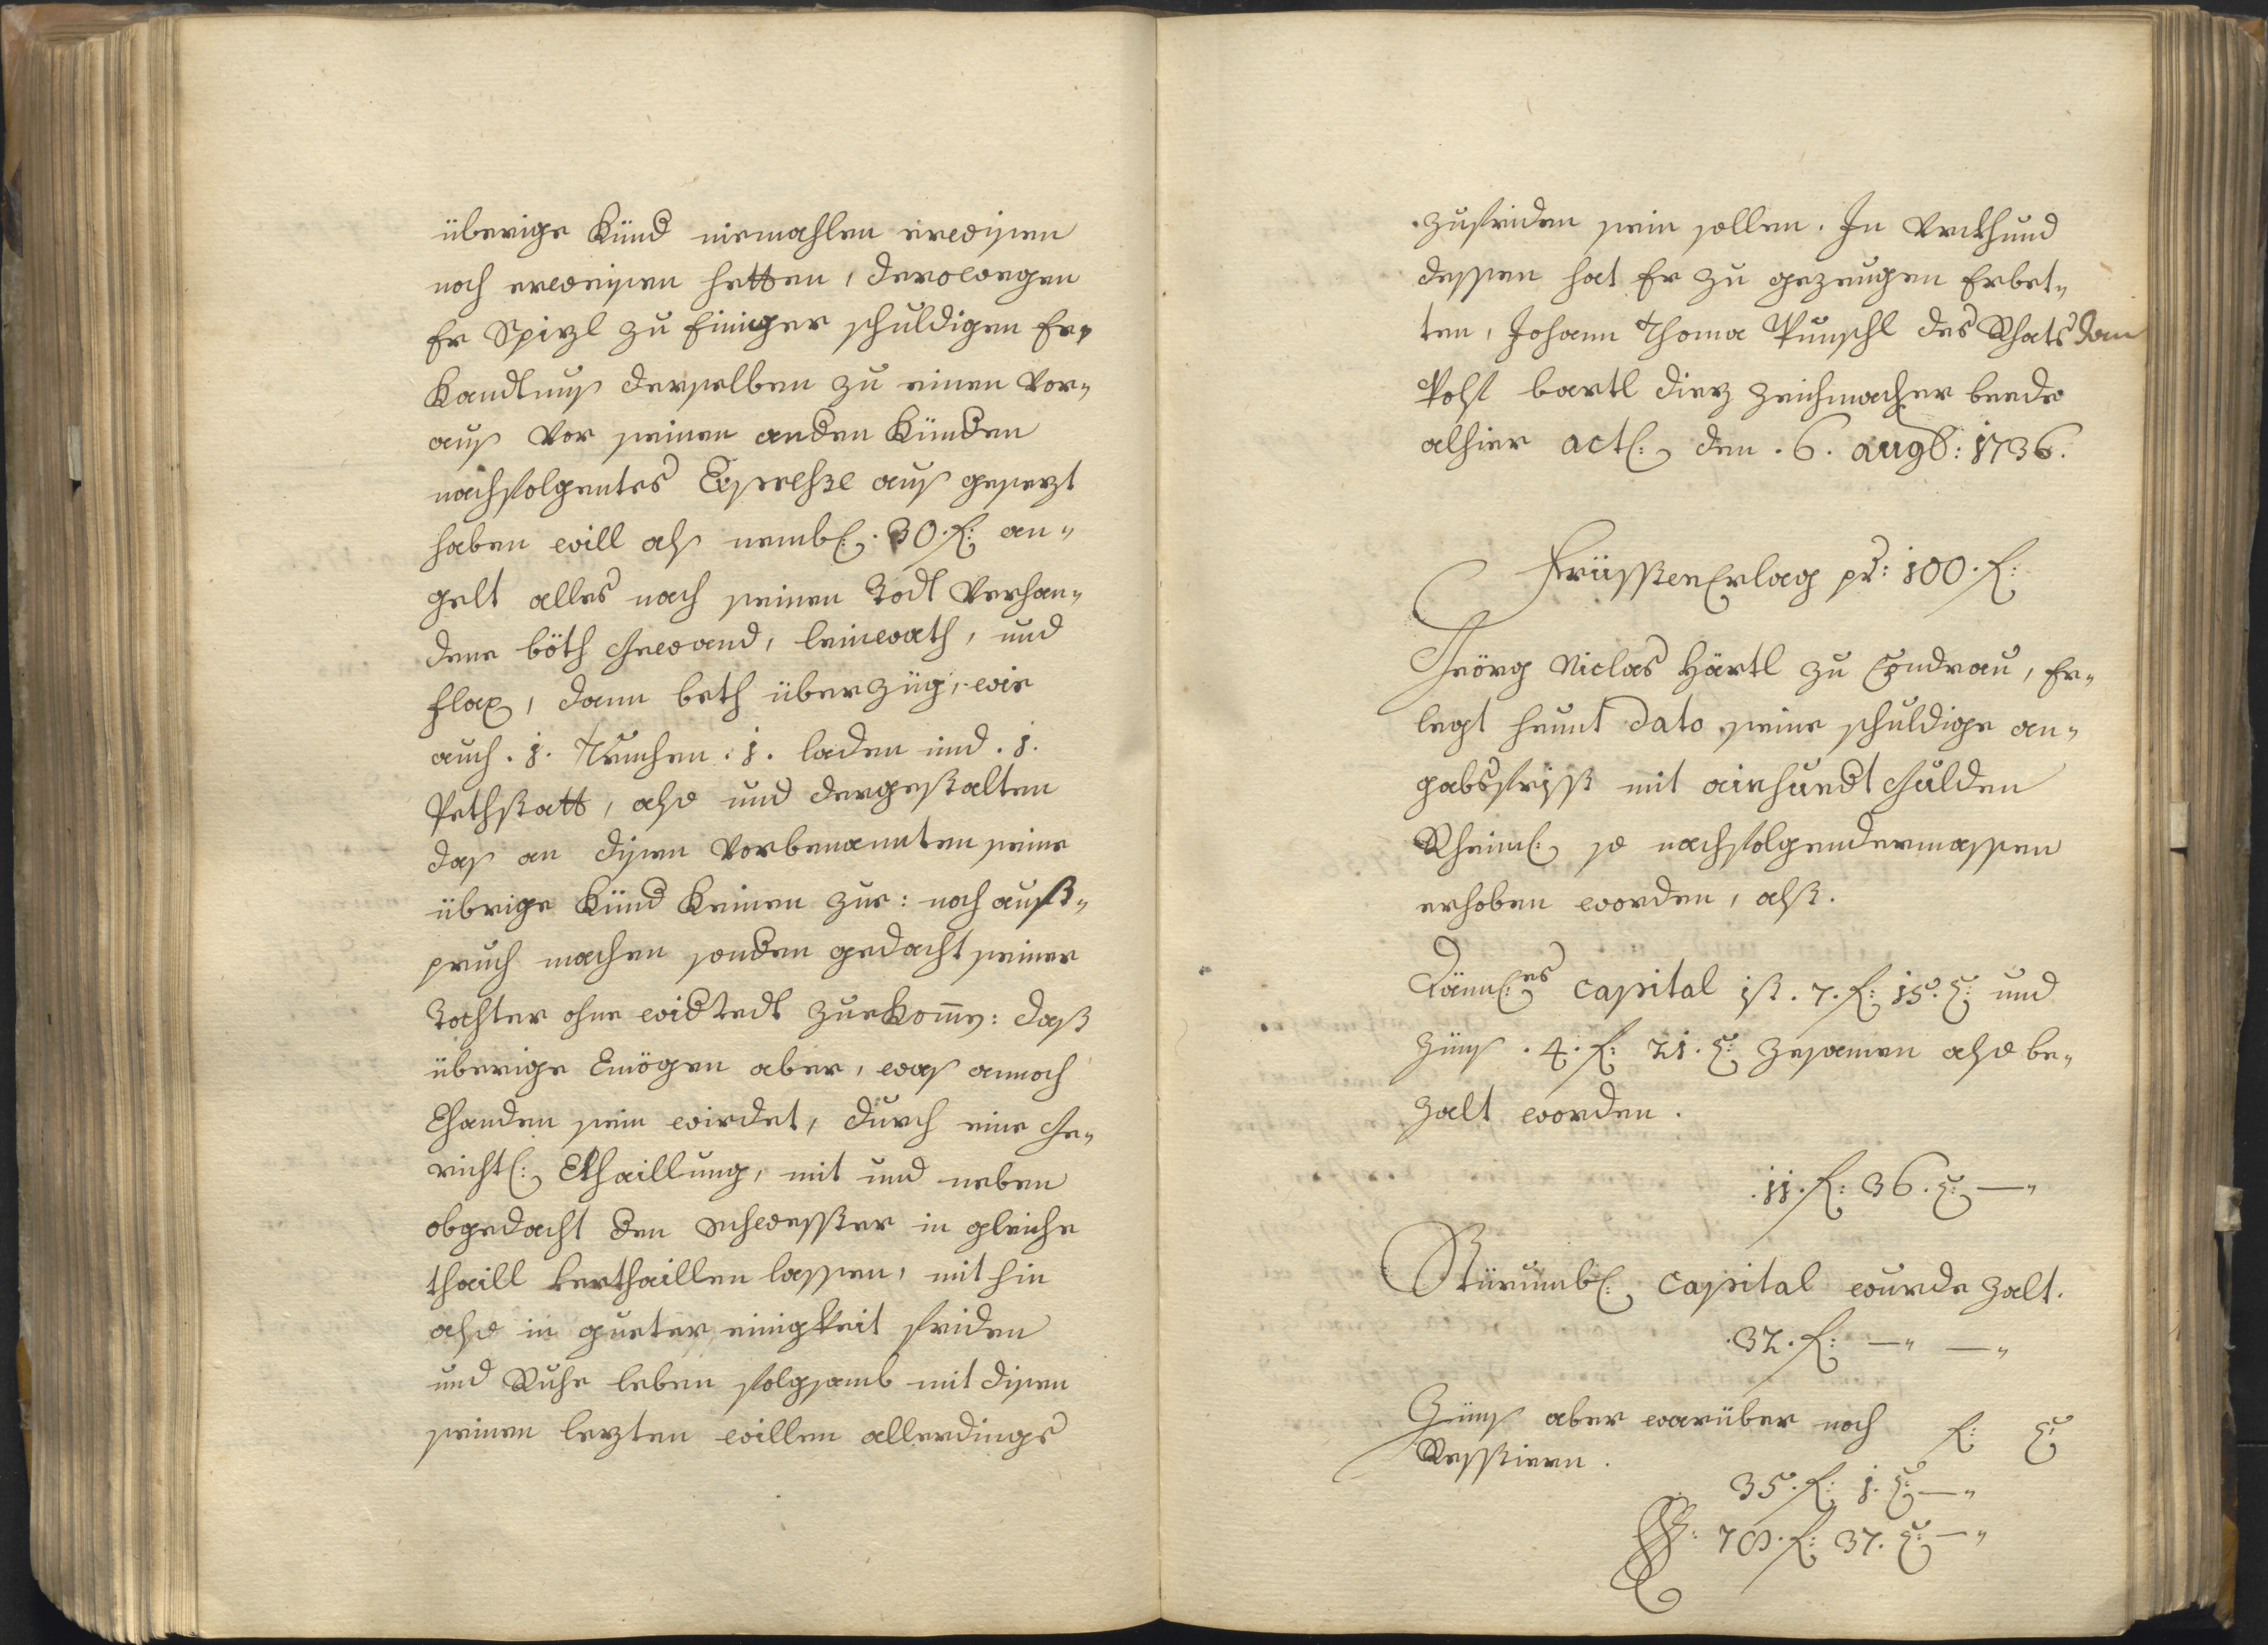 überige Künd niemahlen erweisen
noch erweisen hetten, derowegen
Er Spizl zu Einiger schuldigen Er„
Kandtnuß derselben zu einen Vor„
auß Vor seinen andern Kündern
nachfolgentes auß gesezt
haben will alß nembl: 30. f: an„
gelt alles nach seinen Todt Verhan„
dene böth Gewand, leinwath, und
flax, dann beth überzüg, wie
auch .1. Truchen .1. laden und .1.
Pethstatt, also und dergestalten
daß an disen Vorbenannten seine
übrige Künd Keinen zue: noch anß„
pruch machen sondern gedacht seiner
Tochter ohne widtredt zuekomen: daß
überige Vmögen aber, waß annoch
Vhanden sein wirdet, durch eine Ge„
richtl: Vthaillung, mit und neben
obgedacht den schwesster in gleiche
thaill verthaillen lassen, mit hin
also in gueter einigkeit friden
und Ruhe leben folgsamb mit disen
seinen lezten willen allerdings
zufriden sein sollen. In Vrkhund
dessen hat Er zu gezeugen Erbet„
ten, Johann Thoma Punschl des Rhats dan
Wolf bartl diez Zeichmacher beede
alhier actl: den .6. augs: 1736.
Früssten Erlag pr: 100. f:
Geörg Niclas Härtl zu Condrau, Er„
legt heunt dato seine schuldige an„
gabsfrisst mit ainhundt Gulden
Rheinl: so nachfolgendermassen
erhoben worden, alß.
capital ist .7. f: 15. x: und
Zünß .4. f: 21. x: zesamen also be„
zalt worden.
.11. f: 36. x: —„
capital wurde zalt.
.32. f: —„ —„
Zünß aber warüber noch f: x:
Resstiern.
35. f: 1. x: —„
S: 78. f: 37. x: —„